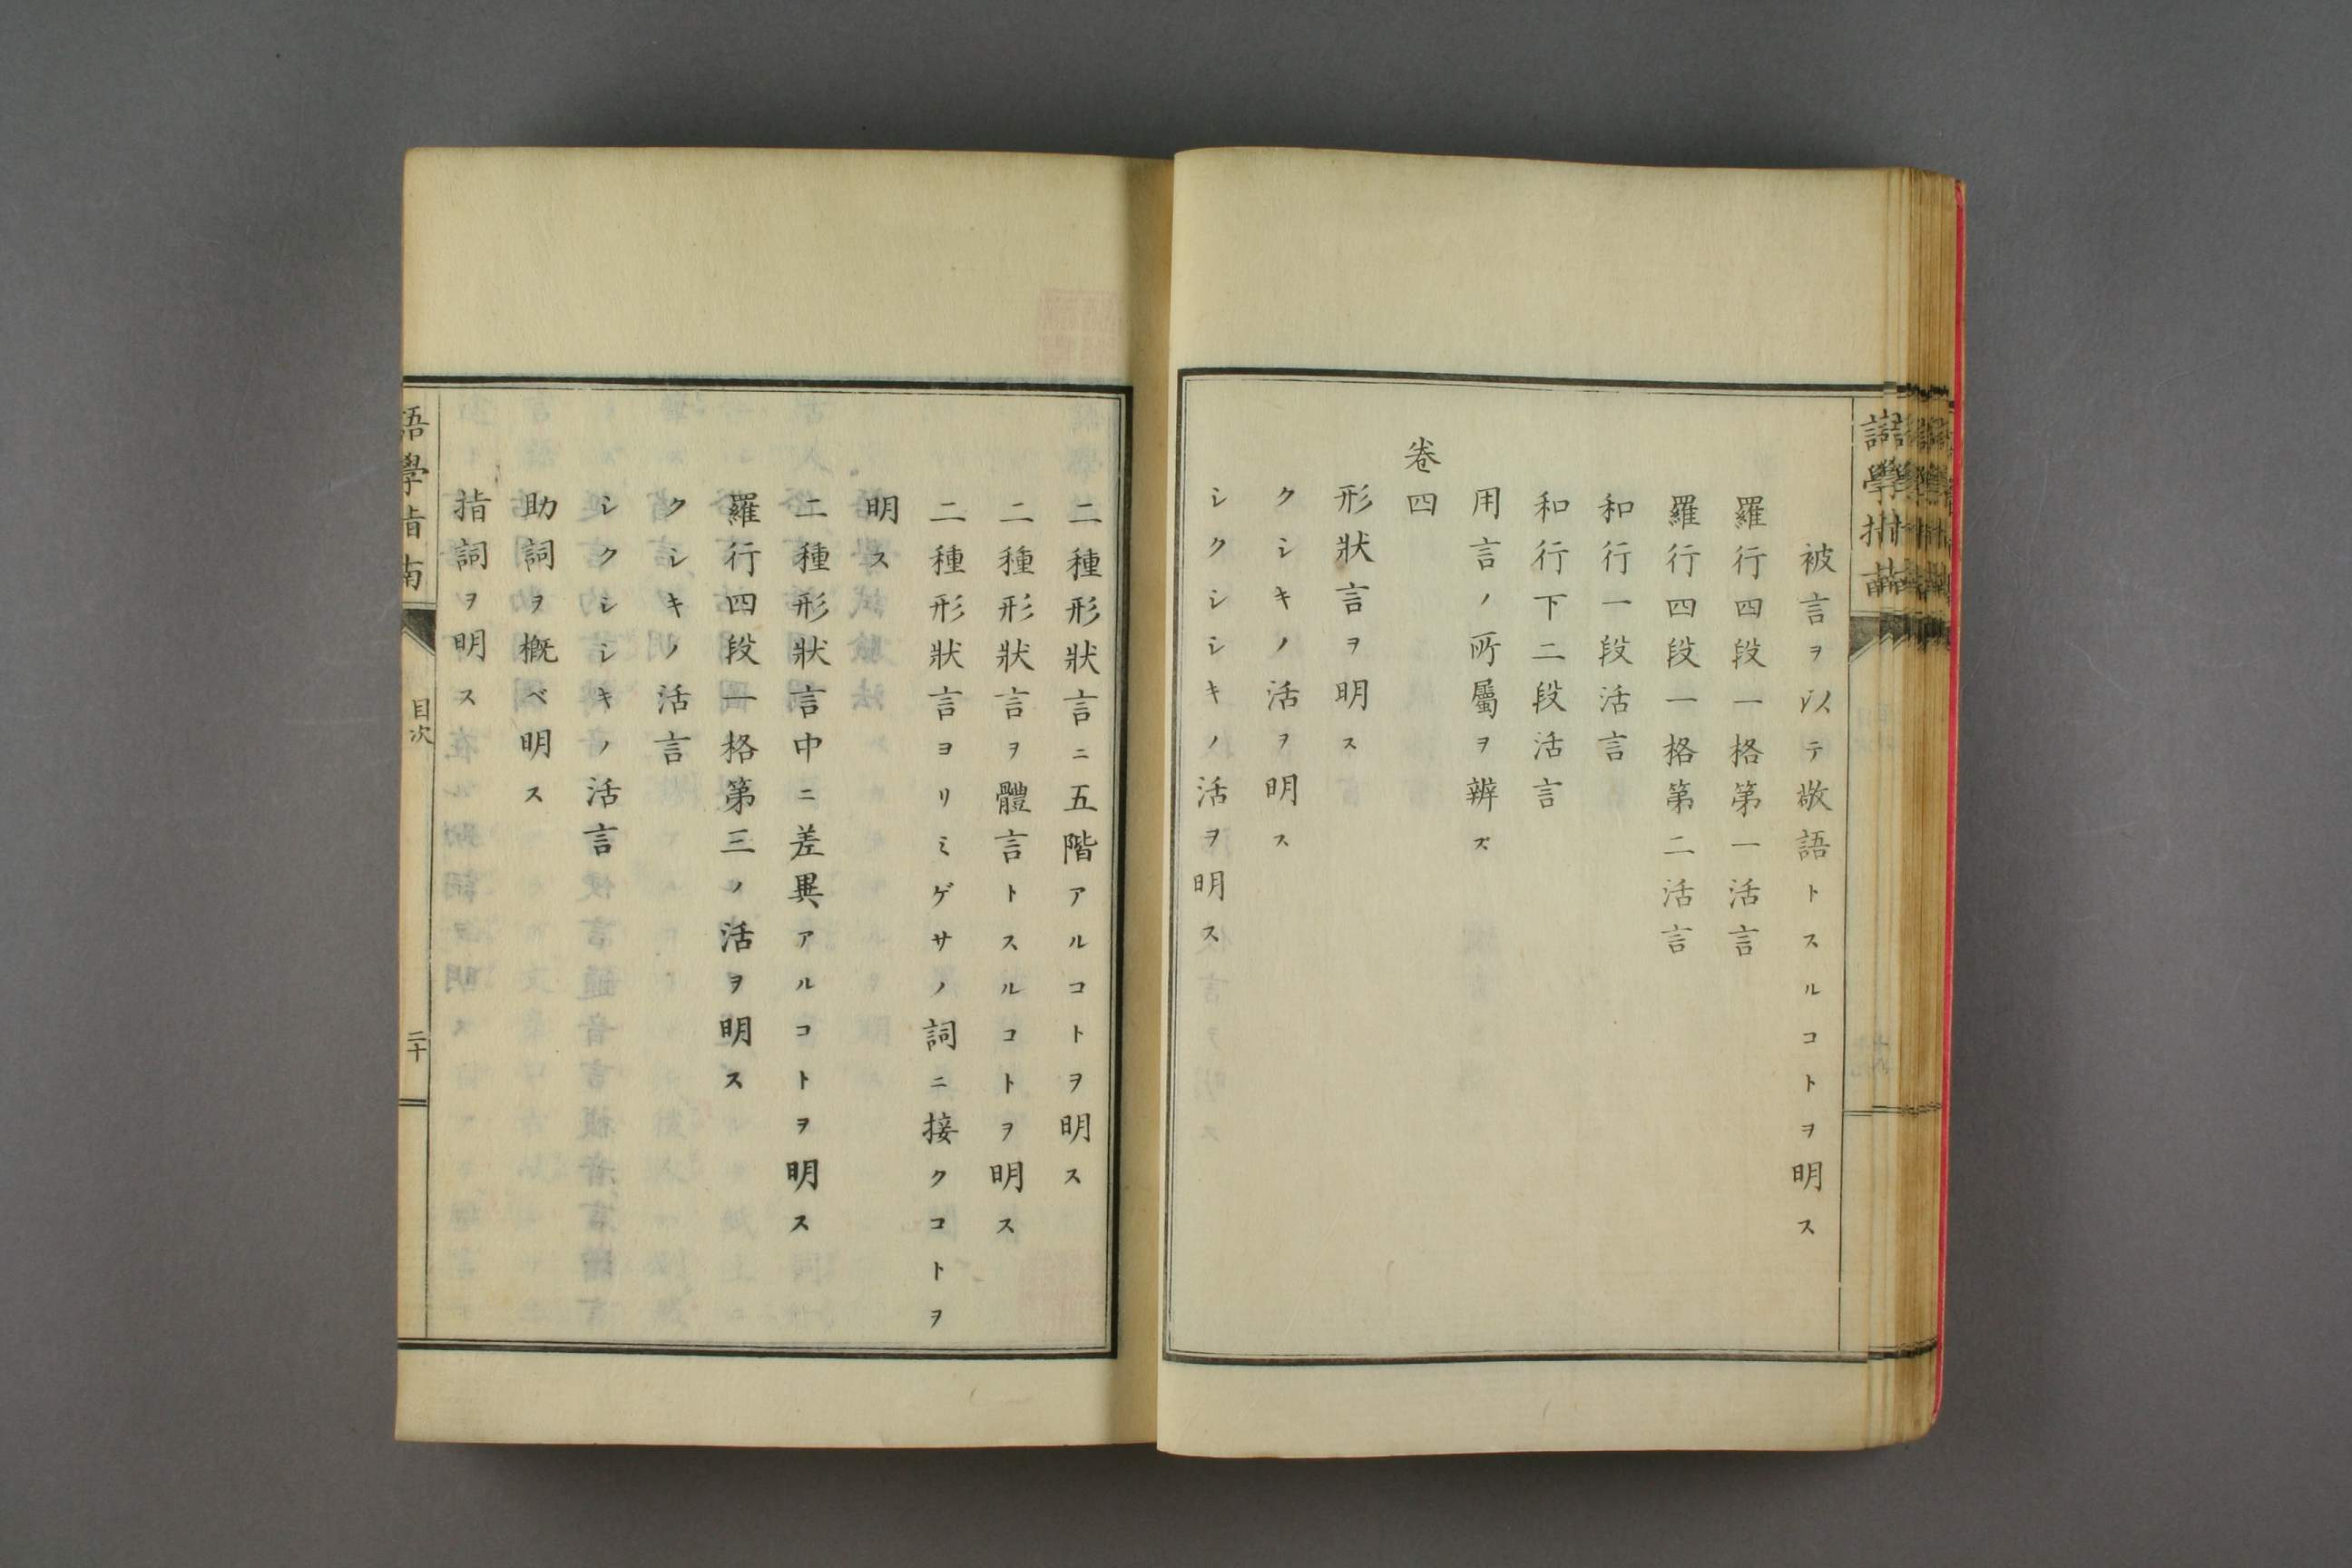 被言ヲ以テ敬語トスルコトヲ明ス
羅行四段一格第一活言
羅行四段一格第二活言
和行一段活言
和行下二段活言
用言ノ所屬ヲ辨ズ
卷四
形狀言ヲ明ス
クシキノ活ヲ明ス
シクシシキノ活ヲ明ス
二種形狀言ニ五階アルコトヲ明ス
二種形狀言ヲ體言トスルコトヲ明ス
二種形狀言ヨリミゲサノ詞ニ接クコトヲ
明ス
二種形狀言中ニ差異アルコトヲ明ス
羅行四段一格第三ノ活ヲ明ス
クシキノ活言
シクシシキノ活言
助詞ヲ概ベ明ス
指詞ヲ明ス
語學指南
目次
二十